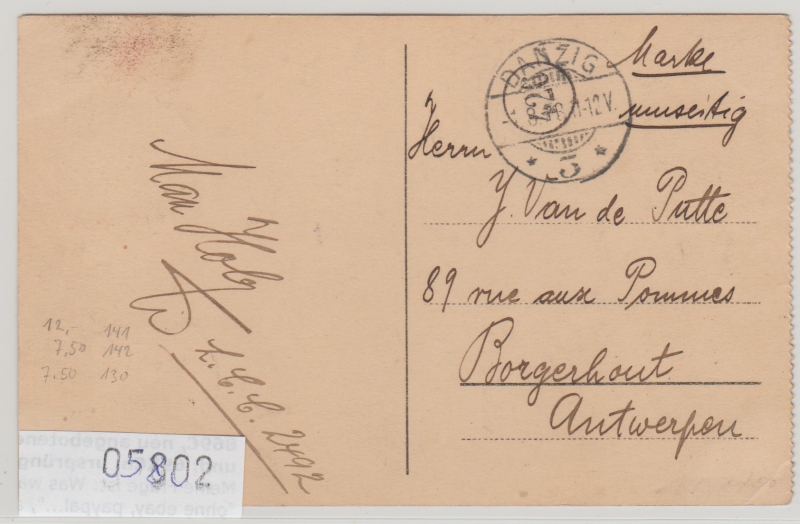 Marke
umseitig
DANZIG
11-12V.
* 5 *
Herrn
J. Van de Putte
89 rue aux Pommes
Borgerhout
Antwerpen
Max Holz
L.C.C. 2492
12,- 141
7,50 142
7.50 130
05802